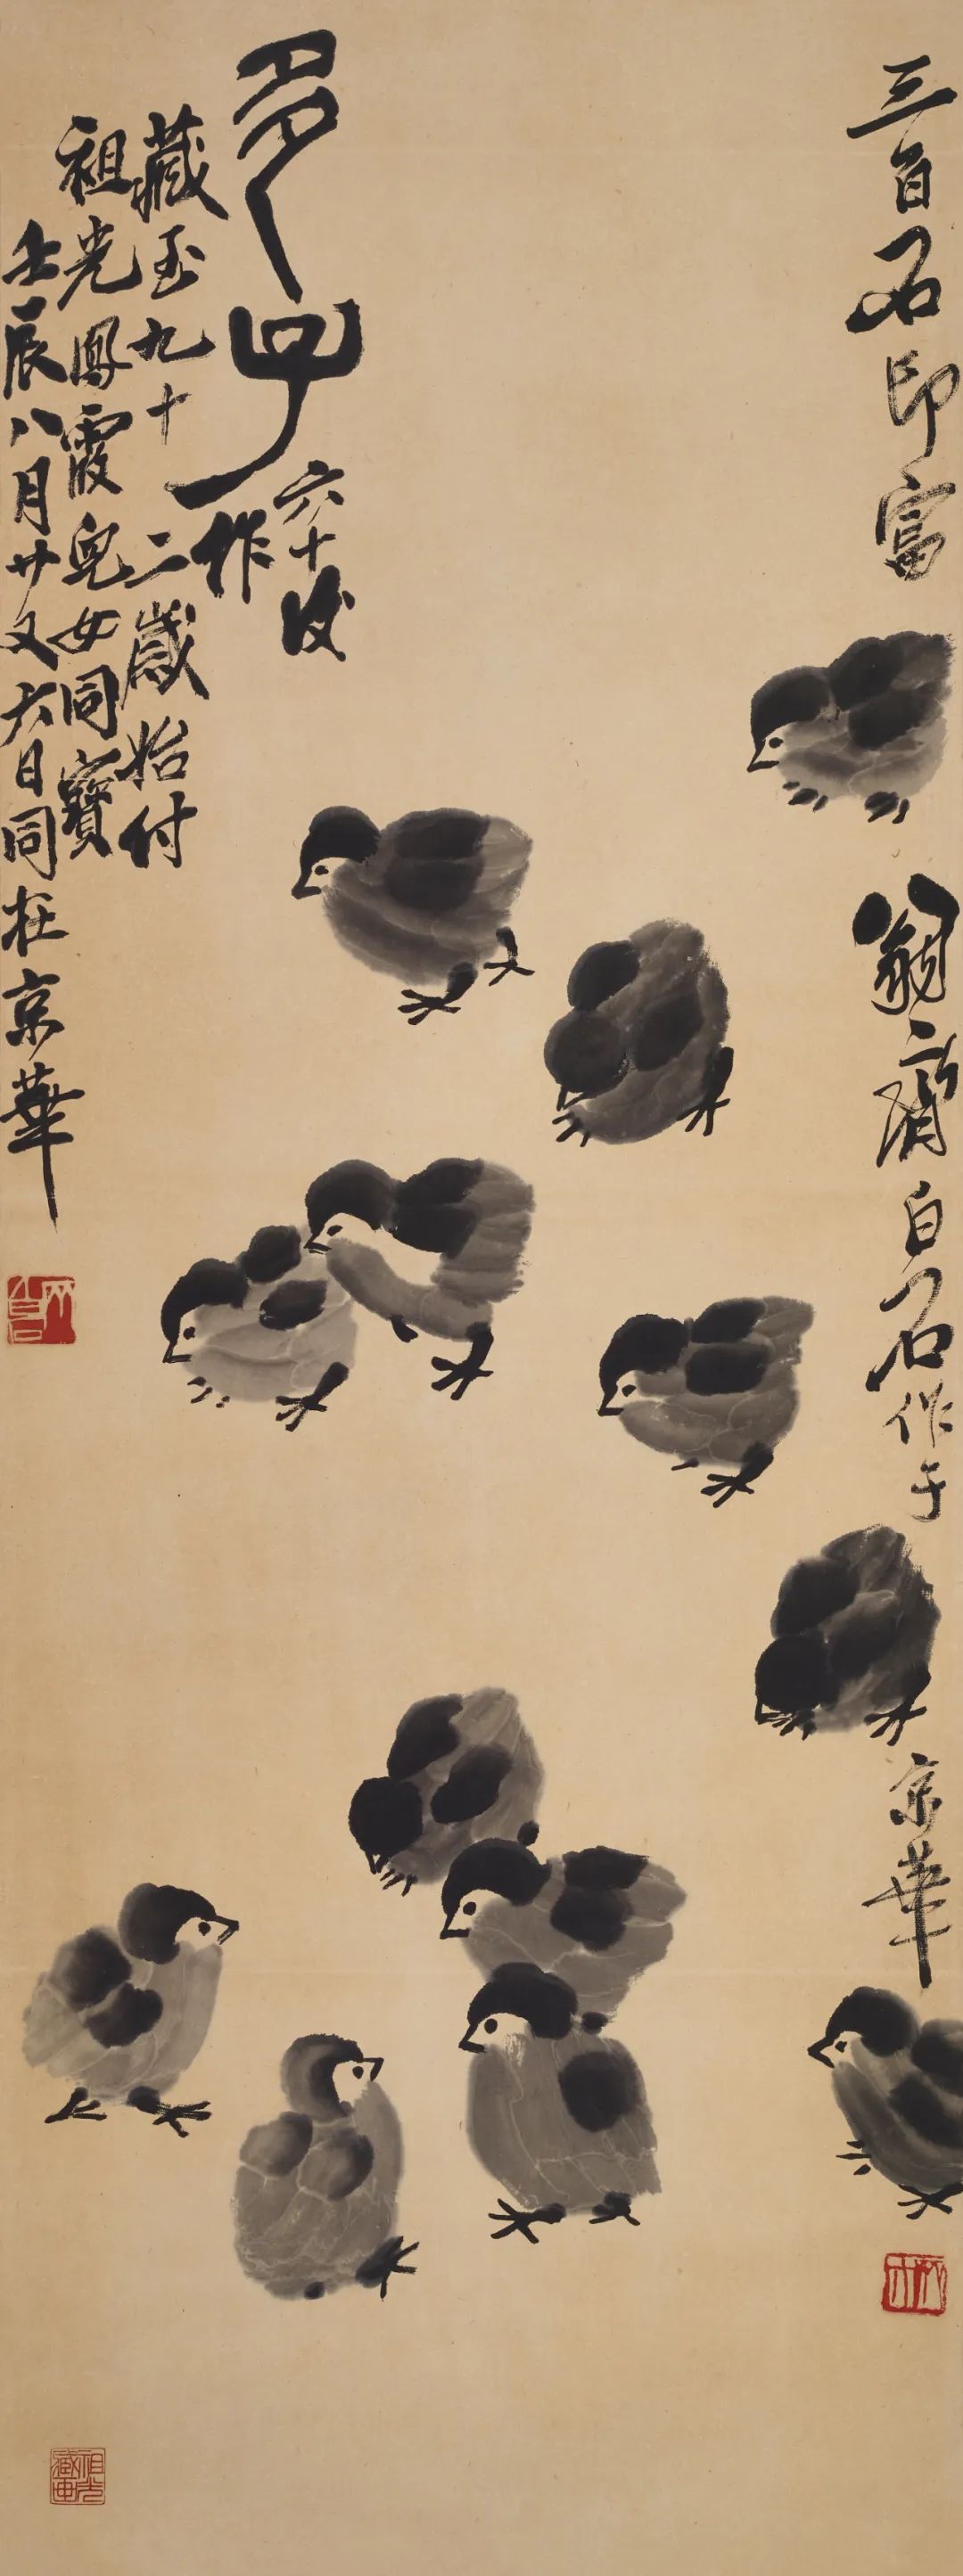 三百石印富翁齊白石作于京華
多子
六十後
作
藏至九十二歲始付
祖光鳳霞兒女同寶
壬辰八月廿又六日同在京華
祖光藏画